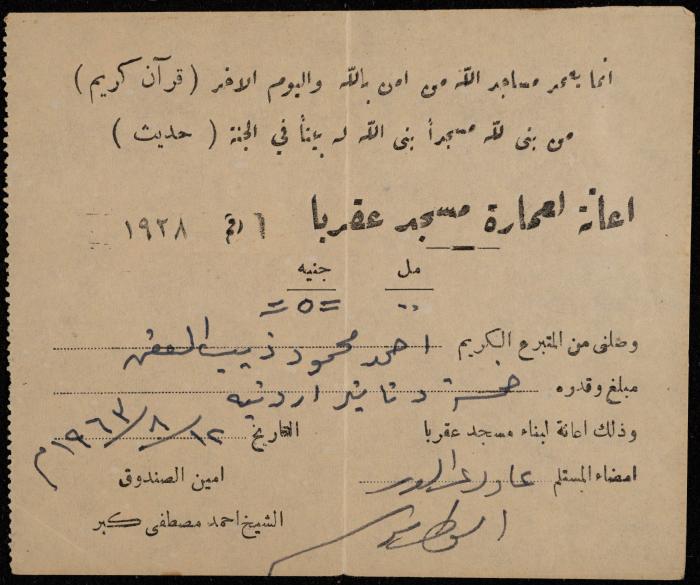 انما يعمر مساجد الله من امن بالله واليوم الاخر ( قرآن كريم )
من بنى لله مسجداً بنى الله له بيتاً في الجنة ( حديث )
اعانة لعمارة مسجد عقربا
رقم ١٩٢٨
مل جنيه
.. = ٥ =
وصلني من المتبرع الكريم احمد محمود ذيب
مبلغ وقدره خمسة دنانير اردنيه
وذلك اعانة لبناء مسجد عقربا التاريخ ١٢/٨/١٩٦٣م
امضاء المستلم
امين الصندوق
الشيخ احمد مصطفى كبر